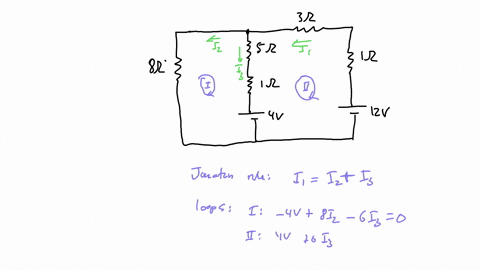 3Ω
I₂
5Ω
I₁
8Ω
I₃
1Ω
I
1Ω
II
4V
12V
Junction rule: I₁ = I₂ + I₃
loops: I: -4V + 8I₂ - 6I₃ = 0
II: 4V +6I₃